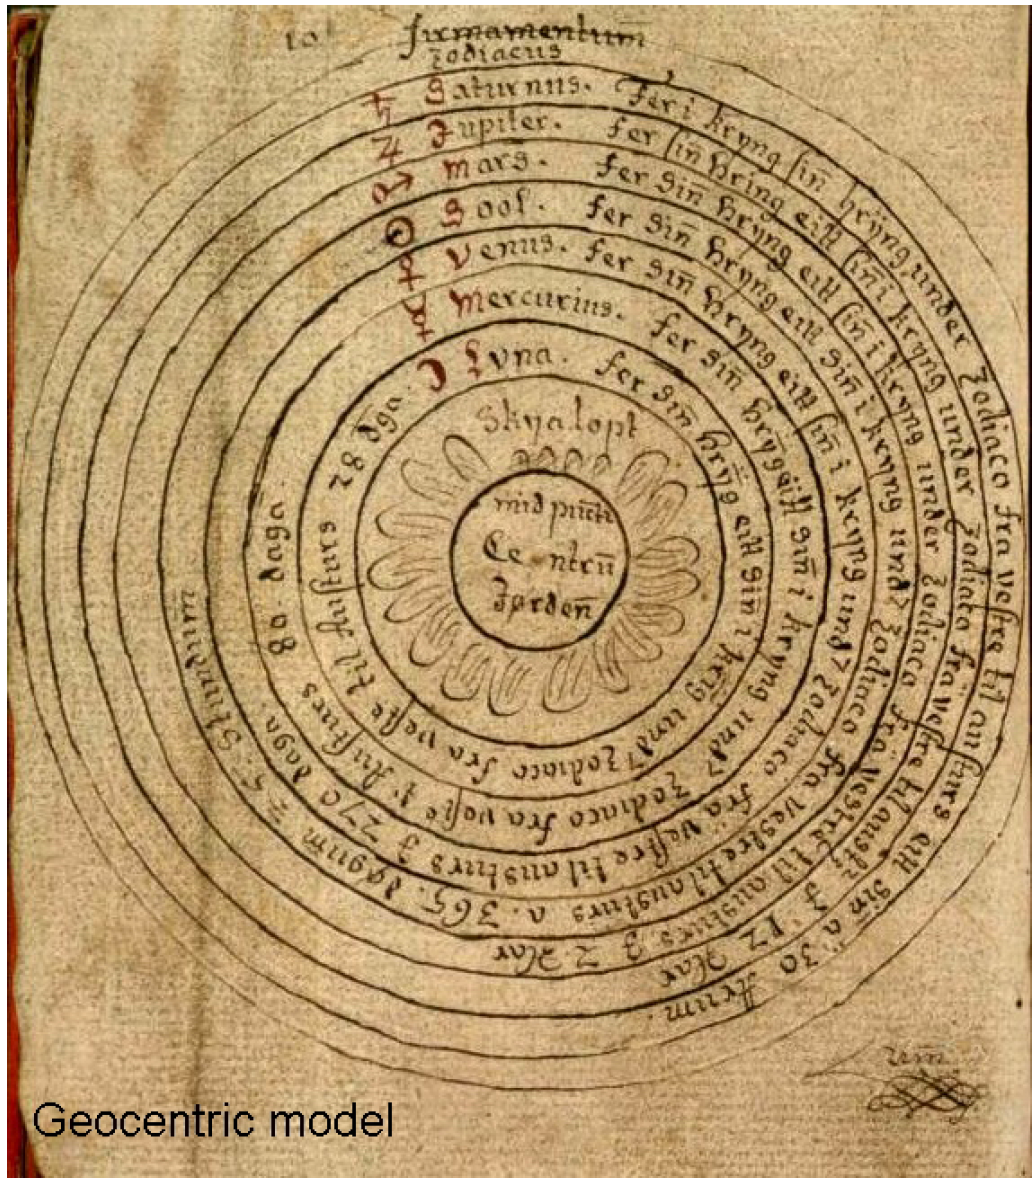 10
firmamentum̅
Zodiacus
♄ Saturnus. fer i kryng sin̅ hrÿng under Zodiaco fra vestre til austurs eitt sin̅ a 30 Arum.
♃ Jupiter. fer sin̅ hring eitt sin̅ i kryng under Zodiaco frä vestre til 12
♂ Mars. fer sin̅ hryng eitt sin̅ i kryng under Zodiaco frä vestre til austurs 2
☉ Sool. fer sin̅ hryng eitt sin̅ i kryng und Zodiaco fra vestre til austurs a. 365. dagum stundum̅
♀ Venus. fer sin̅ hryng eitt sin̅ i kryng und Zodiaco frä vestre til austurs 270 daga.
☿ Mercurius. fer sin̅ hrÿg eitt sin̅ i kryng und Zodiaco fra austurs 80 daga.
☽ Luna. fer sin̅ hrÿg eitt sin̅ i und Zodiaco fra til Austurs 28 dga.
Skyalopt
mid
Centru̅
Jorden̅
Geocentric model